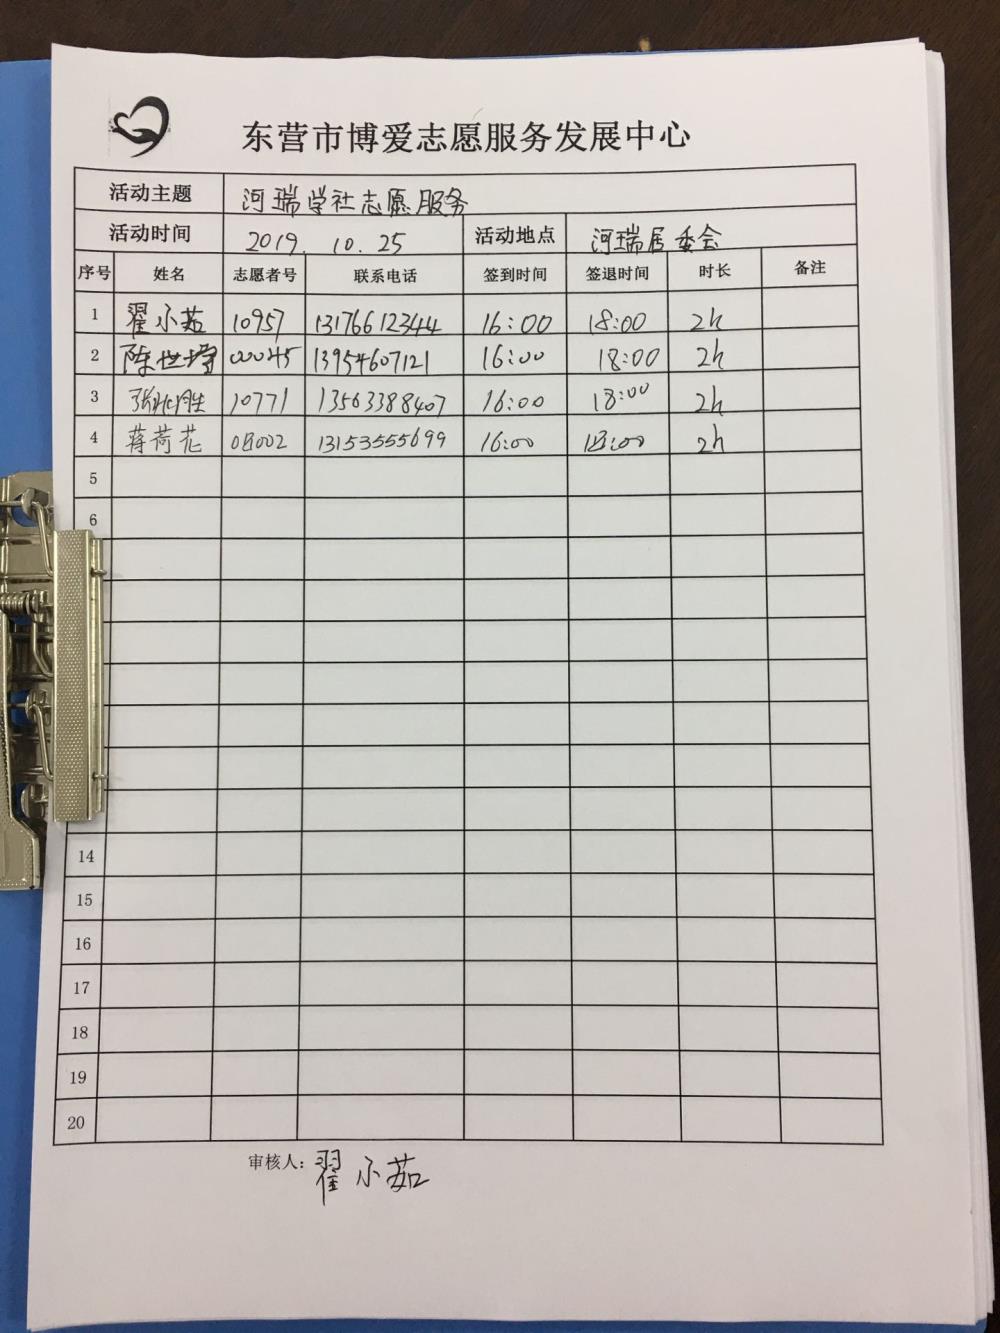 东营市博爱志愿服务发展中心
活动主题 河瑞学社志愿服务
活动时间 2019.10.25 活动地点 河瑞居委会
序号 姓名 志愿者号 联系电话 签到时间 签退时间 时长 备注
1 翟小茹 10957 13176612344 16:00 18:00 2h
2 陈世 00045 13954607121 16:00 18:00 2h
3 张 胜 10771 13563388407 16:00 18:00 2h
4 蒋荷花 08002 13153555699 16:00 18:00 2h
5
6
14
15
16
17
18
19
20
审核人: 翟小茹